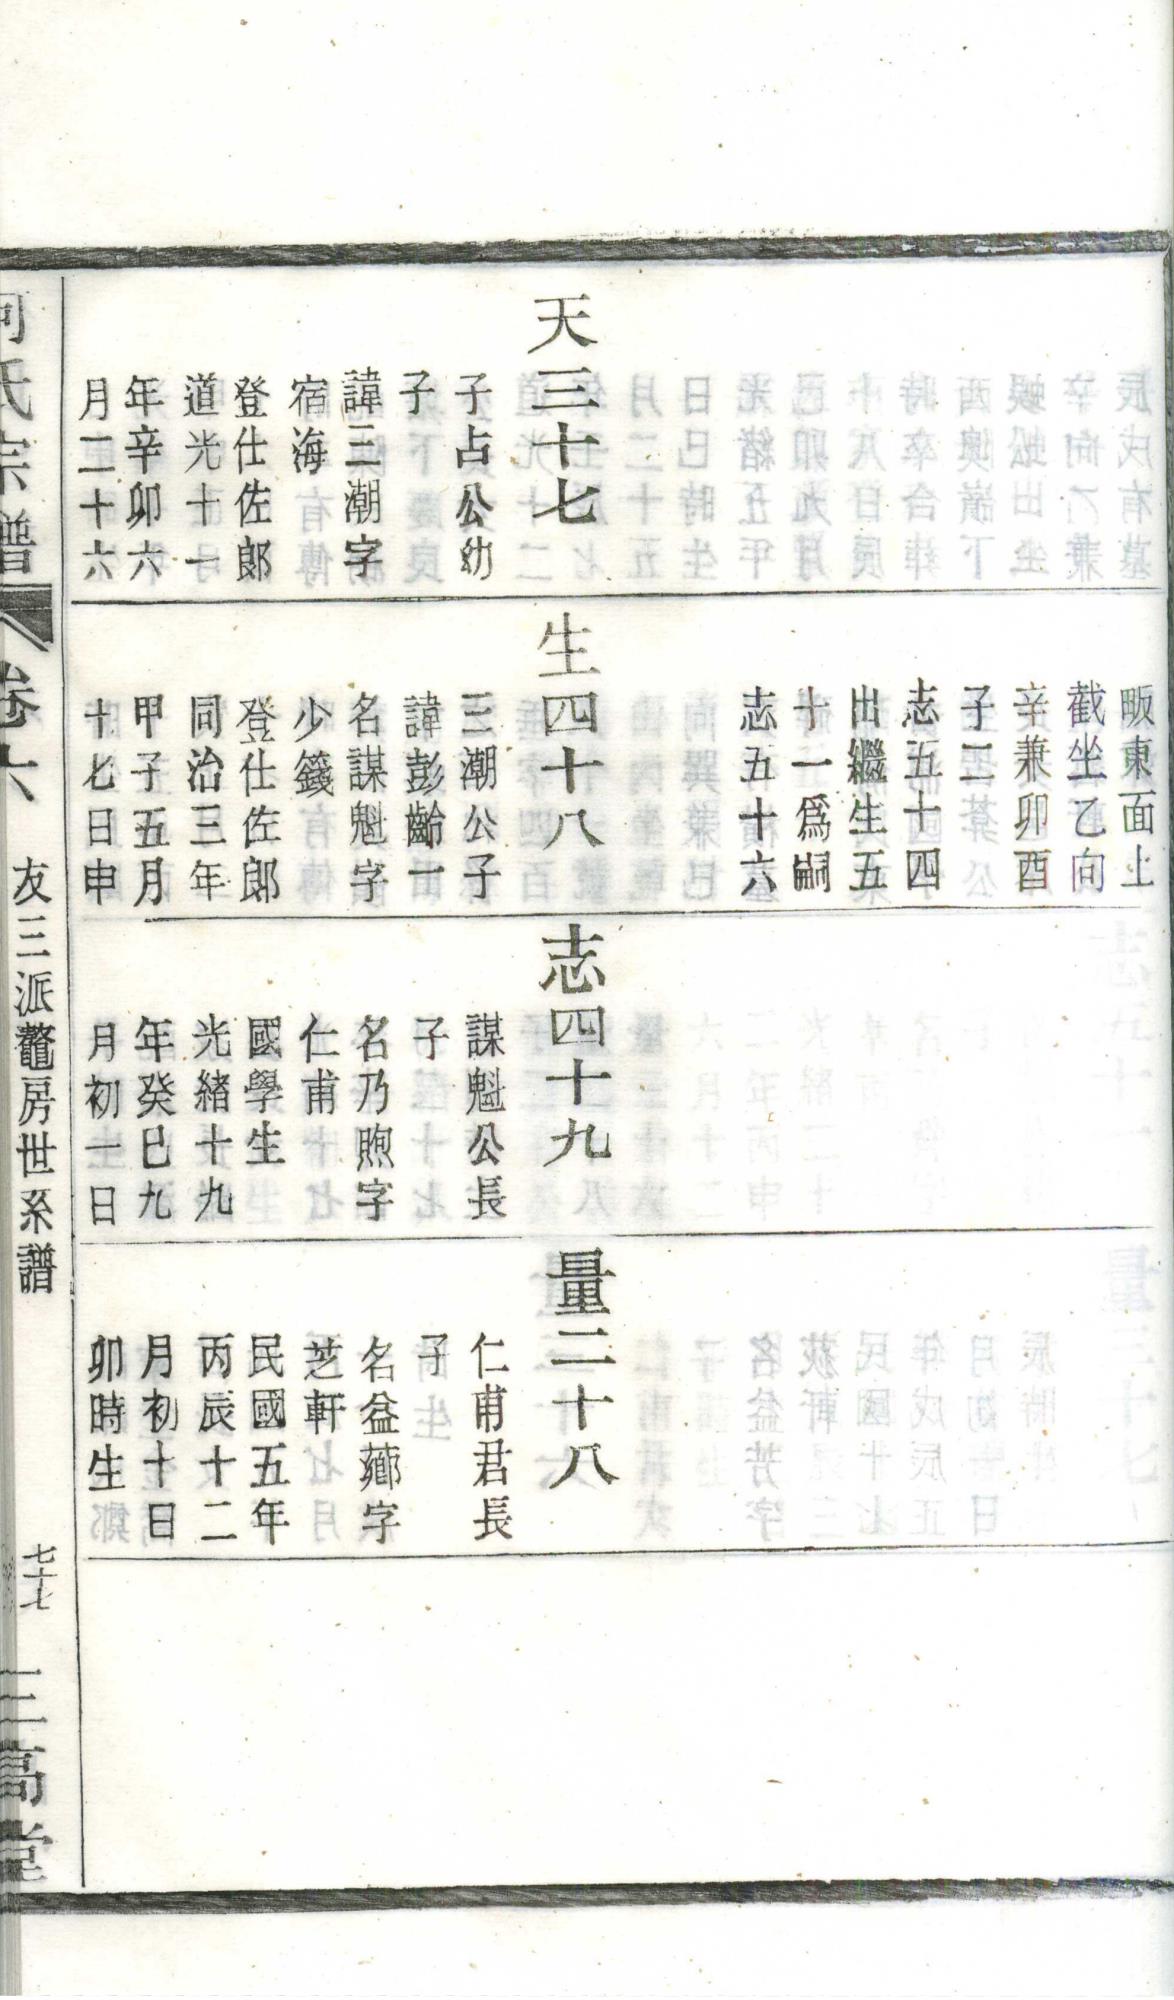 天三十七
子占公幼
子
諱三潮字
宿海
登仕佐郎
道光十一
年辛卯六
月二十六
畈東面上
截坐乙向
辛兼卯酉
子二
志五十四
出繼生五
十一爲嗣
志五十六
生四十八
三潮公子
諱彭齡一
名謀魁字
少籛
登仕佐郎
同治三年
甲子五月
十七日申
志四十九
謀魁公長
子
名乃煦字
仁甫
國學生
光緒十九
年癸巳九
月初一日
量二十八
仁甫君長
子
名益薌字
芝軒
民國五年
丙辰十二
月初十日
卯時生
氏宗譜
卷六
友三派鼇房世系譜
七十七
三高堂